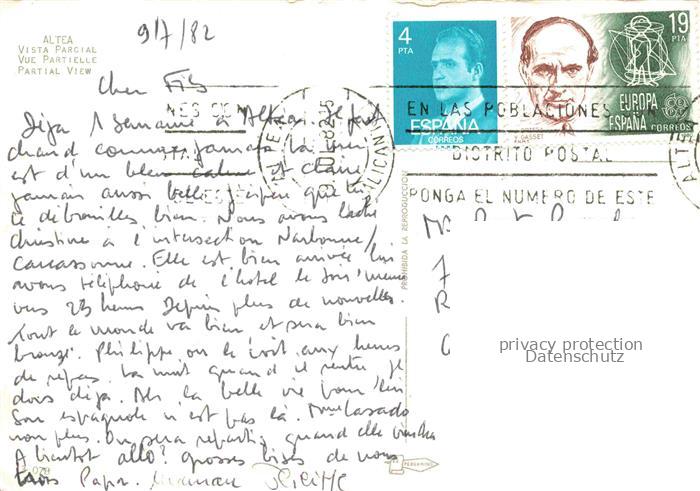 ALTEA
VISTA PARCIAL
VUE PARTIELLE
PARTIAL VIEW
9/7/82
4
PTA
ESPAÑA
CORREOS
19
PTA
EUROPA
ESPAÑA
CORREOS
J. GASSET
EN LAS POBLACIONES
DISTRITO POSTAL
PONGA EL NUMERO DE ESTE
Cher Fils
Déjà 1 semaine à Altea. Il fait
chaud comme jamais la mer
est d'un bleu calme et claire
jamais aussi belle. J'espère que tu
te débrouilles bien. Nous avons laché
Christine à l'intersection Narbonne/
Carcassonne. Elle est bien arrivée
avons téléphoné de l'hotel le soir même
vers 23 heures Depuis plus de nouvelles.
Tout le monde va bien et sera bien
bronzé. Philippe on le voit aux heures
de repas. La nuit quand il rentre je
dors déjà. Ah la belle vie pour lui
Son espagnole n'est pas là. Mme Casado
non plus. On sera reparti quand elle viendra
A bientôt allo? grosses bises de nous
trois Papa. Maman
PROHIBIDA LA REPRODUCCION
PEREGRINO
privacy protection
Datenschutz